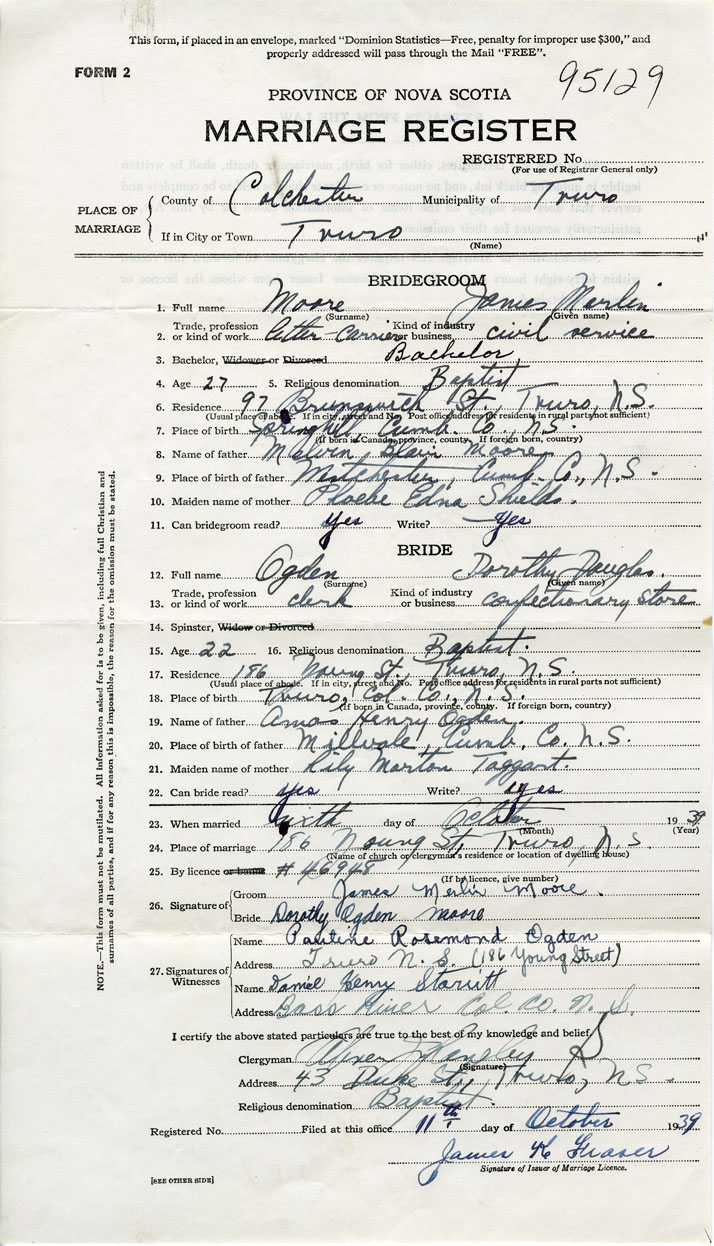 This form, if placed in an envelope, marked "Dominion Statistics—Free, penalty for improper use $300," and
properly addressed will pass through the Mail "FREE".
FORM 2
95129
PROVINCE OF NOVA SCOTIA
MARRIAGE REGISTER
REGISTERED No.
(For use of Registrar General only)
PLACE OF MARRIAGE
County of Colchester Municipality of Truro
If in City or Town Truro
(Name)
BRIDEGROOM
1. Full name Moore James Merlin
(Surname) (Given name)
2. Trade, profession or kind of work letter-carrier Kind of industry or business civil service
3. Bachelor, Widower or Divorced Bachelor
4. Age 27 5. Religious denomination Baptist
6. Residence 97 Brunswick St., Truro, N.S.
(Usual place of abode. If in city, street and No. Post office address for residents in rural parts not sufficient)
7. Place of birth Springhill, Cumb. Co., N.S.
(If born in Canada, province, county. If foreign born, country)
8. Name of father Melvin Blair Moore
9. Place of birth of father Westchester, Cumb. Co., N.S.
10. Maiden name of mother Phoebe Edna Shields.
11. Can bridegroom read? yes Write? yes
BRIDE
12. Full name Ogden Dorothy Douglas
(Surname) (Given name)
13. Trade, profession or kind of work clerk Kind of industry or business confectionary store
14. Spinster, Widow or Divorced
15. Age 22 16. Religious denomination Baptist.
17. Residence 186 Young St., Truro, N.S.
(Usual place of abode. If in city, street and No. Post office address for residents in rural parts not sufficient)
18. Place of birth Truro, Col. Co., N.S.
(If born in Canada, province, county. If foreign born, country)
19. Name of father Amos Henry Ogden.
20. Place of birth of father Millvale, Cumb. Co. N.S.
21. Maiden name of mother Lily Morton Taggart.
22. Can bride read? yes Write? yes
23. When married sixth day of October 1939
(Month) (Year)
24. Place of marriage 186 Young St., Truro, N.S.
(Name of church or clergyman's residence or location of dwelling house)
25. By licence or banns # 46948
(If by licence, give number)
26. Signature of
Groom James Merlin Moore.
Bride Dorothy Ogden Moore
27. Signatures of Witnesses
Name Pauline Rosemond Ogden
Address Truro N.S. (186 Young Street)
Name Daniel Henry Starritt
Address Bass River Col. Co. N.S.
I certify the above stated particulars are true to the best of my knowledge and belief
Clergyman Abner J. Langley
(Signature)
Address 43 Duke St., Truro, N.S.
Religious denomination Baptist.
Registered No. Filed at this office 11th day of October 1939
James K Fraser
Signature of Issuer of Marriage Licence.
[SEE OTHER SIDE]
NOTE.—This form must not be mutilated. All information asked for is to be given, including full Christian and
surnames of all parties, and if for any reason this is impossible, the reason for the omission must be stated.